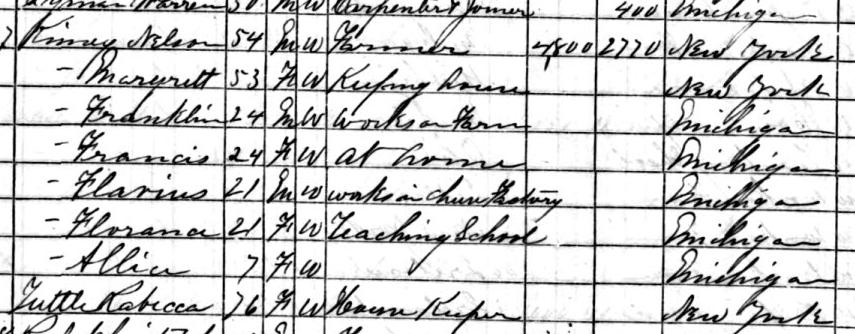 Warren 50 M W Carpenter & Joiner 400 Michigan
7 Kinney Nelson 54 M W Farmer 4800 2770 New York
— Margrett 53 F W Keeping House New York
— Franklin 24 M W Works on Farm Michigan
— Francis 24 F W At home Michigan
— Flavius 21 M W works in chees Factory Michigan
— Florance 21 F W Teaching School Michigan
— Allice 7 F W Michigan
Tuttle Rabecca 76 F W House Keeper New York